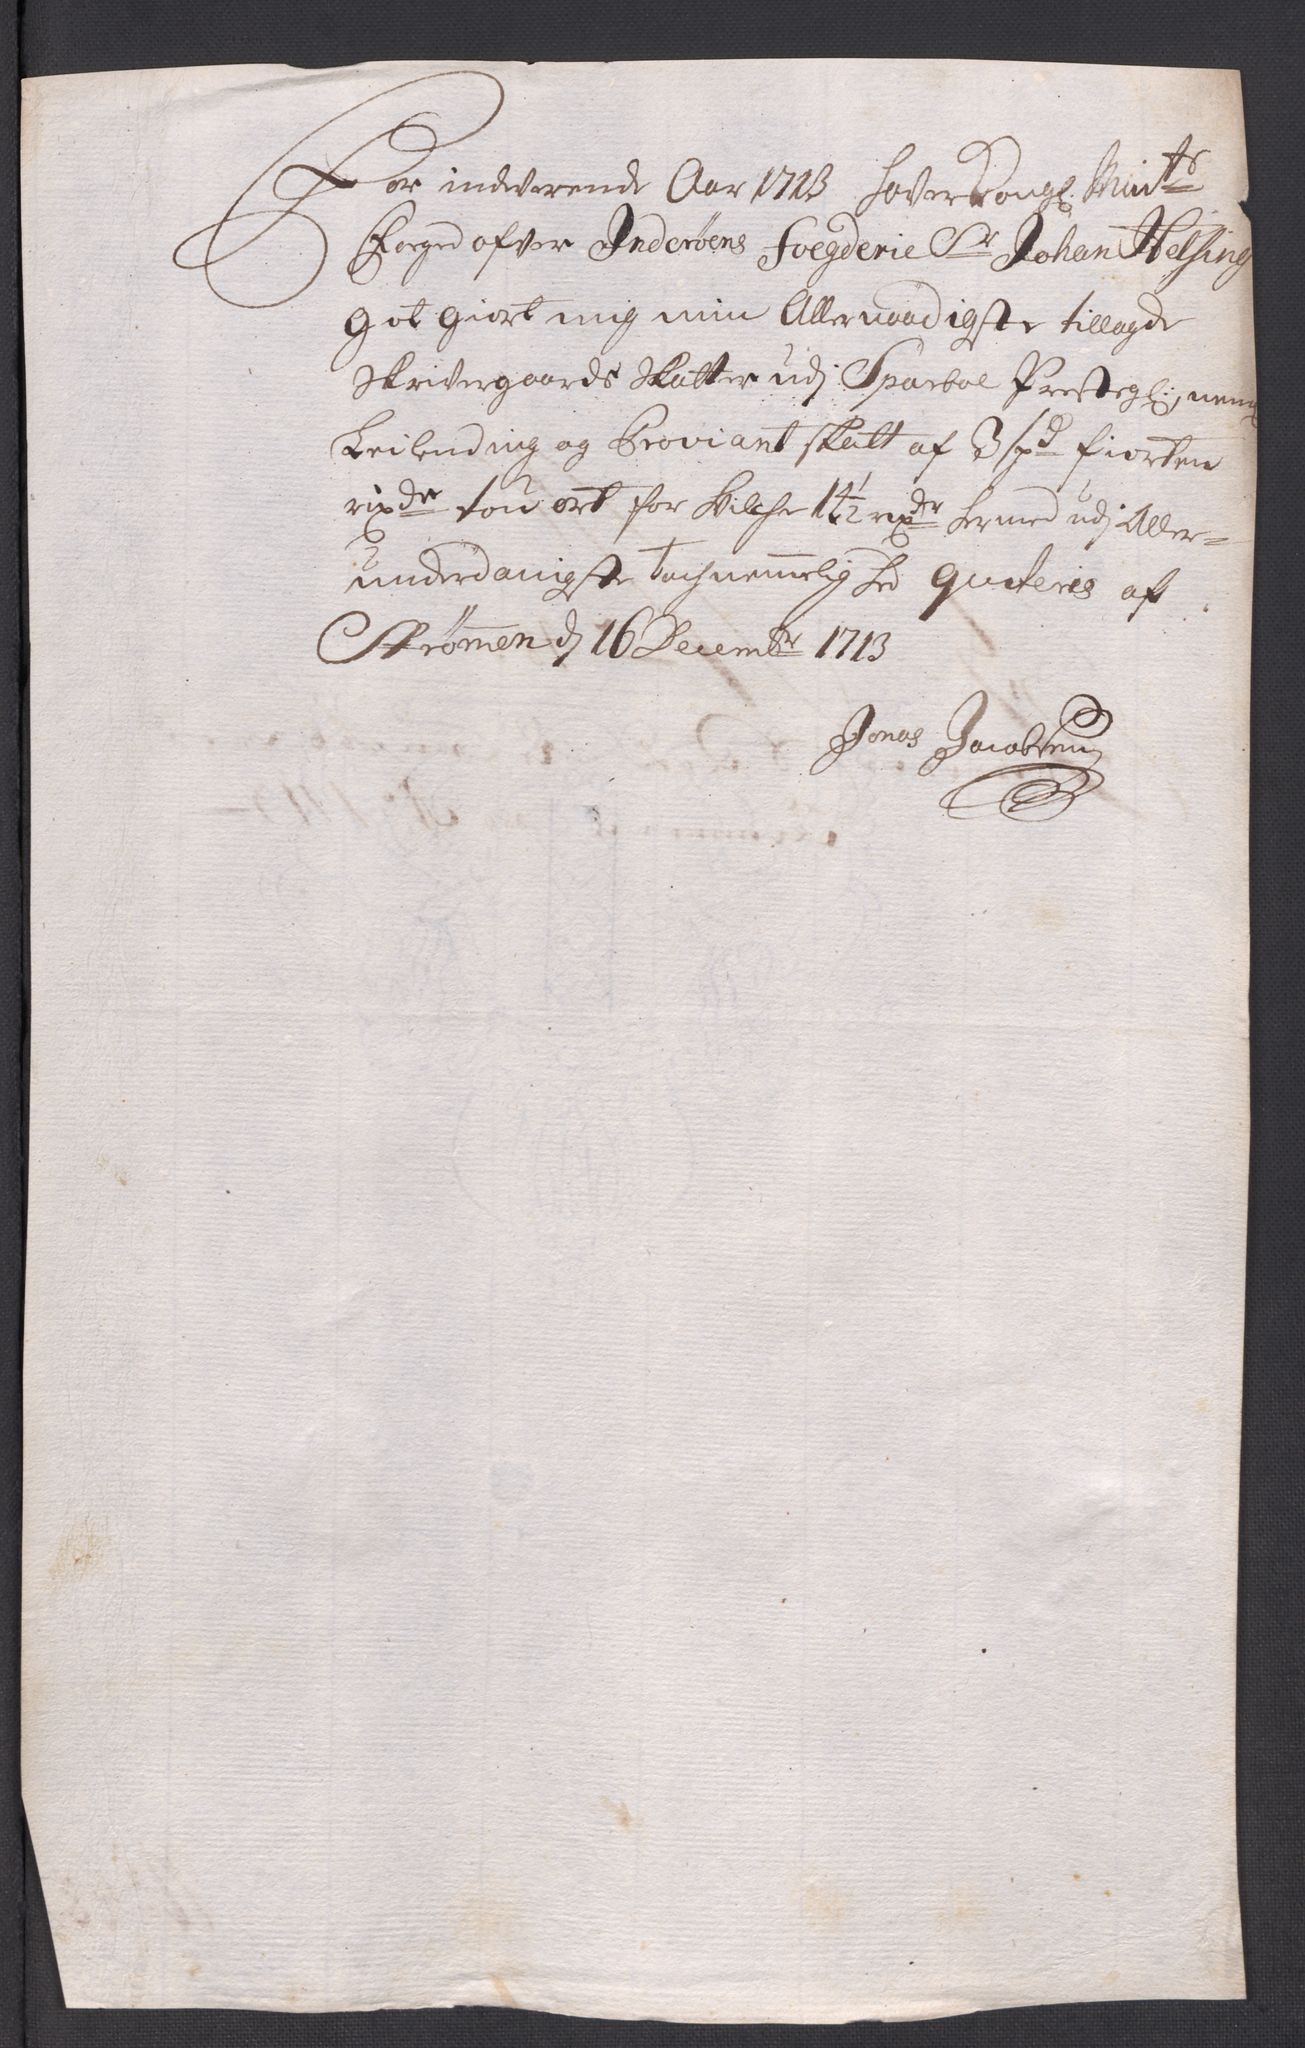 For indverende Aar 1713 haver Kongl. Maits
Foeged ofver Inderöens foegderie Sr Johan Helsing
got giort mig min Allernaadigste tillagde
Skrivergaards Skatter udj Sparboe Prestegl:, neml
Leilending og Proviant skatt af 3 spd fiorten
rixdr tou ort for hvilche 14½ rixdr hermed udj Aller=
underdanigste tachnemelighed qviteris af
Strömen dj 16 Decembr 1713
Jonas Jacobsen